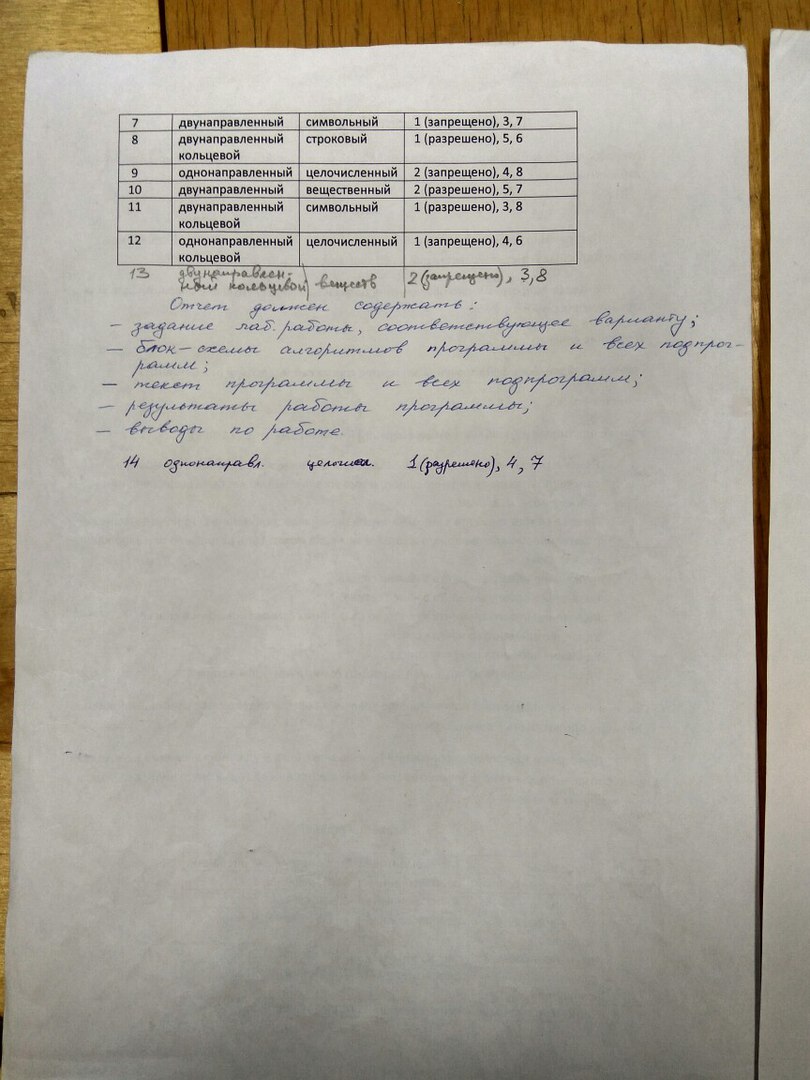 7 двунаправленный символьный 1 (запрещено), 3, 7
8 двунаправленный строковый 1 (разрешено), 5, 6
кольцевой
9 однонаправленный целочисленный 2 (запрещено), 4, 8
10 двунаправленный вещественный 2 (разрешено), 5, 7
11 двунаправленный символьный 1 (разрешено), 3, 8
кольцевой
12 однонаправленный целочисленный 1 (запрещено), 4, 6
кольцевой
13 двунаправлен-
ный кольцевой веществ 2 (запрещено), 3,8
Отчет должен содержать:
– задание лаб. работы, соответствующее варианту;
– блок-схемы алгоритмов программы и всех подпрог-
рамм;
– текст программы и всех подпрограмм;
– результаты работы программы;
– выводы по работе.
14 однонаправл. целочисл. 1 (разрешено), 4, 7